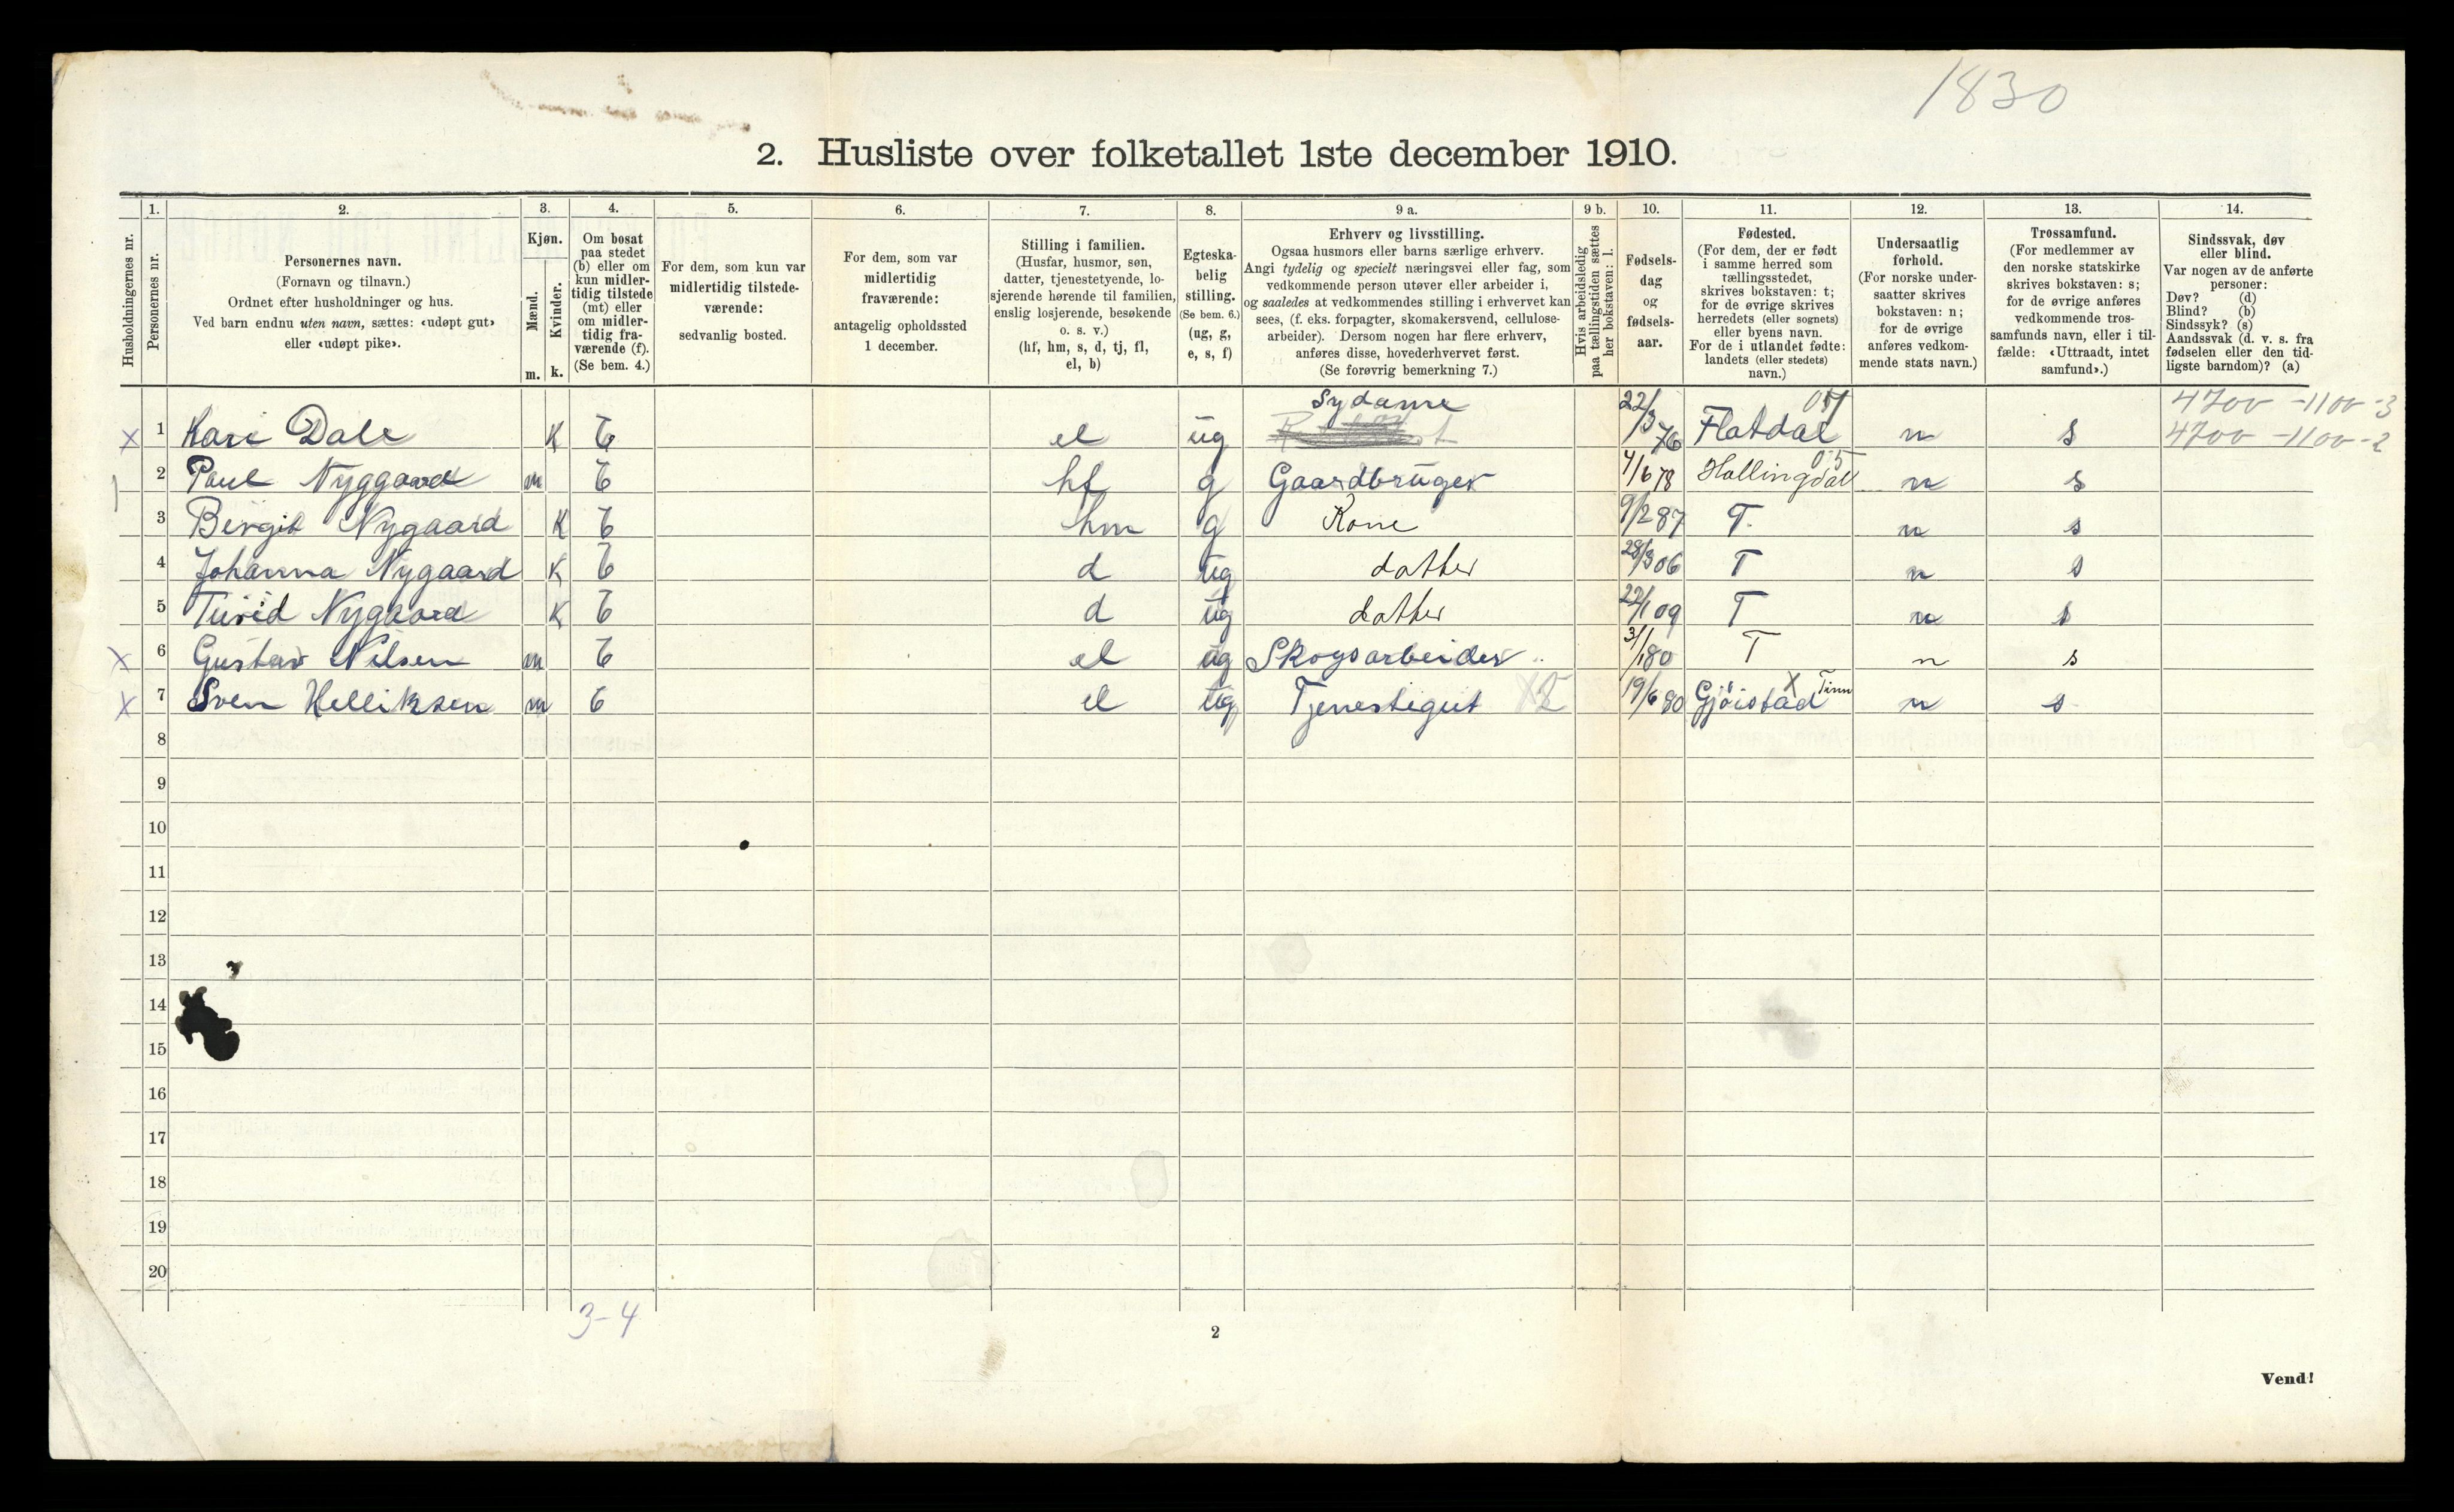 1830
2. Husliste over folketallet 1ste december 1910.
Husholdningernes nr.
1.
Personernes nr.
2.
Personernes navn.
(Fornavn og tilnavn.)
Ordnet efter husholdninger og hus.
Ved barn endnu uten navn, sættes: «udøpt gut»
eller «udøpt pike».
3.
Kjøn.
Mænd.
Kvinder.
m. k.
4.
Om bosat
paa stedet
(b) eller om
kun midler-
tidig tilstede
(mt) eller
om midler-
tidig fra-
værende (f).
(Se bem. 4.)
5.
For dem, som kun var
midlertidig tilstede-
værende:
sedvanlig bosted.
6.
For dem, som var
midlertidig
fraværende:
antagelig opholdssted
1 december.
7.
Stilling i familien.
(Husfar, husmor, søn,
datter, tjenestetyende, lo-
sjerende hørende til familien,
enslig losjerende, besøkende
o. s. v.)
(hf, hm, s, d, tj, fl,
el, b)
8.
Egteska-
belig
stilling.
(Se bem. 6.)
(ug, g,
e, s, f)
9 a.
Erhverv og livsstilling.
Ogsaa husmors eller barns særlige erhverv.
Angi tydelig og specielt næringsvei eller fag, som
vedkommende person utøver eller arbeider i,
og saaledes at vedkommendes stilling i erhvervet kan
sees, (f. eks. forpagter, skomakersvend, cellulose-
arbeider). Dersom nogen har flere erhverv,
anføres disse, hovederhvervet først.
(Se forøvrig bemerkning 7.)
9 b.
Hvis arbeidsledig
paa tællingstiden sættes
her bokstaven: l.
10.
Fødsels-
dag
og
fødsels-
aar.
11.
Fødested.
(For dem, der er født
i samme herred som
tællingsstedet,
skrives bokstaven: t;
for de øvrige skrives
herredets (eller sognets)
eller byens navn.
For de i utlandet fødte:
landets (eller stedets)
navn.)
12.
Undersaatlig
forhold.
(For norske under-
saatter skrives
bokstaven: n;
for de øvrige
anføres vedkom-
mende stats navn.)
13.
Trossamfund.
(For medlemmer av
den norske statskirke
skrives bokstaven: s;
for de øvrige anføres
vedkommende tros-
samfunds navn, eller i til-
fælde: «Uttraadt, intet
samfund».)
14.
Sindssvak, døv
eller blind.
Var nogen av de anførte
personer:
Døv? (d)
Blind? (b)
Sindssyk? (s)
Aandssvak (d. v. s. fra
fødselen eller den tid-
ligste barndom)? (a)
Sydame 4700 -1100-3
x 1 Kari Dale K b el ug 22/3 76 Flatdal n s 4700 -1100-2
2 Paul Nyggaard m b hf g Gaardbruger 4/6 78 Hallingdal 05 n s
3 Birgit Nygaard K b hm g Kone 9/2 87 T. n s
4 Johanna Nygaard K b d ug datter 28/3 06 T n s
5 Turid Nygaard K b d ug datter 22/1 09 T n s
x 6 Gustav Nilsen m b el ug Skogsarbeider 3/1 80 T n s
x 7 Sven Helliksen m b el ug Tjenestegut 19/6 80 Gjöistad x Tinn n s
8
9
10
11
12
13
14
15
16
17
18
19
20
3-4
2
Vend!